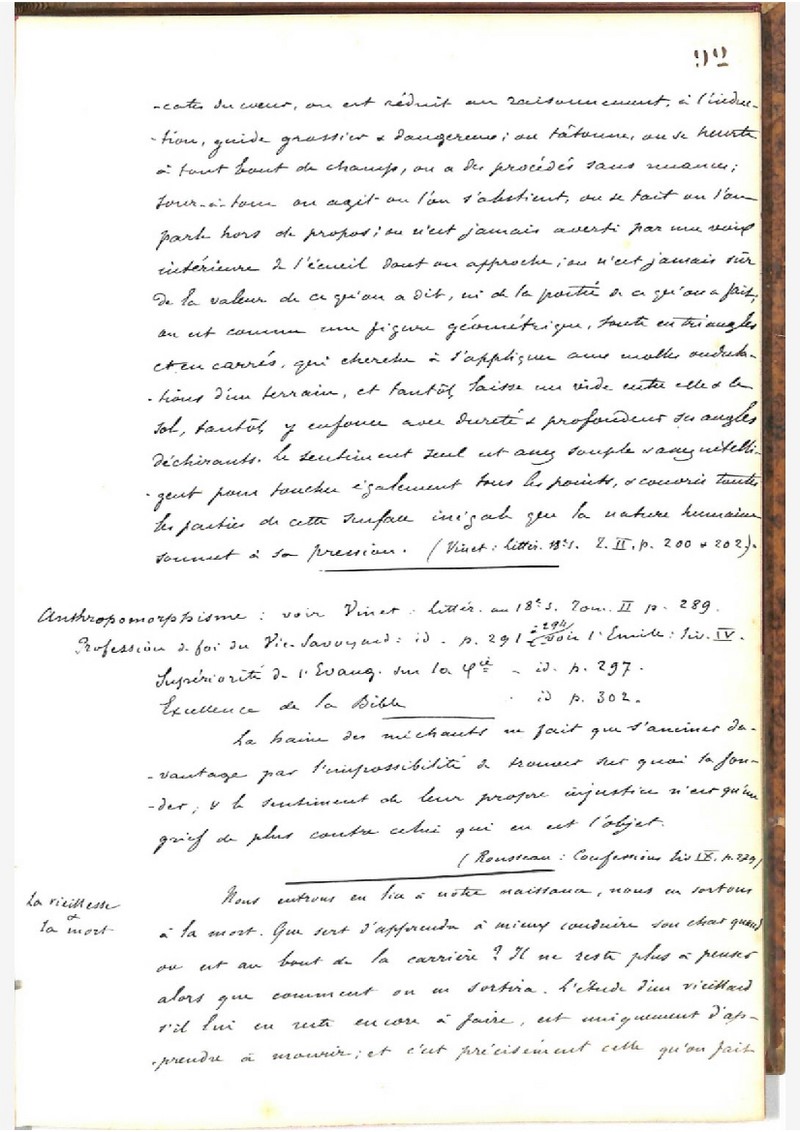 92
-cates du cœur, on est réduit au raisonnement, à l'induc-
-tion, guide grossier & dangereux; on tâtonne, on se heurte
à tout bout de champ, on a des procédés sans nuance;
tour-à-tour on agit ou l'on s'abstient, on se tait ou l'on
parle hors de propos; on n'est jamais averti par une voix
intérieure de l'écueil dont on approche; on n'est jamais sûr
de la valeur de ce qu'on a dit, ni de la portée de ce qu'on a fait;
on est comme une figure géométrique, toute en triangles
et en carrés, qui cherche à s'appliquer aux molles ondula-
-tions d'un terrain, et tantôt laisse un vide entre elle & le
sol, tantôt y enfonce avec dureté & profondeur ses angles
déchirants. Le sentiment seul est assez souple & assez intelli-
-gent pour toucher également tous les points, & couvrir toutes
les parties de cette surface inégale que la nature humaine
soumet à sa pression. (Vinet: littér. 18e s. T. II. p. 200 & 202).
Anthropomorphisme: voir Vinet: littér. au 18e s. Tom. II p. 289.
Profession de foi du Vic. Savoyard: id. p. 291 à 294 voir l'Emile: liv. IV.
Supériorité de l'Evang. sur la φie - id. p. 297.
Excellence de la Bible - id p. 302.
La haine des méchants ne fait que s'animer da-
-vantage par l'impossibilité de trouver sur quoi la fon-
-der; & le sentiment de leur propre injustice n'est qu'un
grief de plus contre celui qui en est l'objet.
(Rousseau: Confessions liv IX. p. 279)
La vieillesse
&
la mort
Nous entrons en lice à notre naissance, nous en sortons
à la mort. Que sert d'apprendre à mieux conduire son char quand
on est au bout de la carrière? Il ne reste plus à penser
alors que comment on en sortira. L'étude d'un vieillard
s'il lui en reste encore à faire, est uniquement d'ap-
-prendre à mourir; et c'est précisément celle qu'on fait